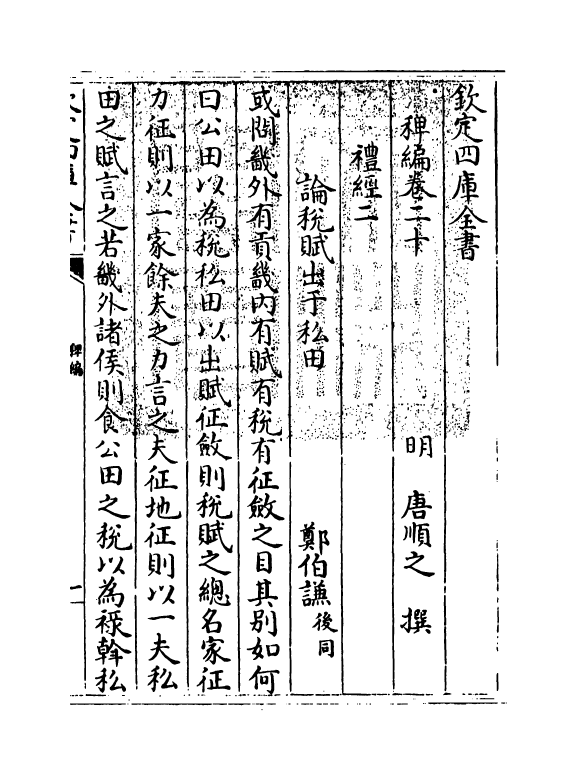 欽定四庫全書
稗編卷二十
明 唐順之 撰
禮經二
論稅賦出于私田
鄭伯謙後同
或問畿外有貢畿内有賦有稅有征斂之目其别如何
曰公田以為稅私田以出賦征斂則稅賦之總名家征
力征則以一家餘夫之力言之夫征地征則以一夫私
田之賦言之若畿外諸侯則食公田之稅以為禄𠏉私
稗編
一